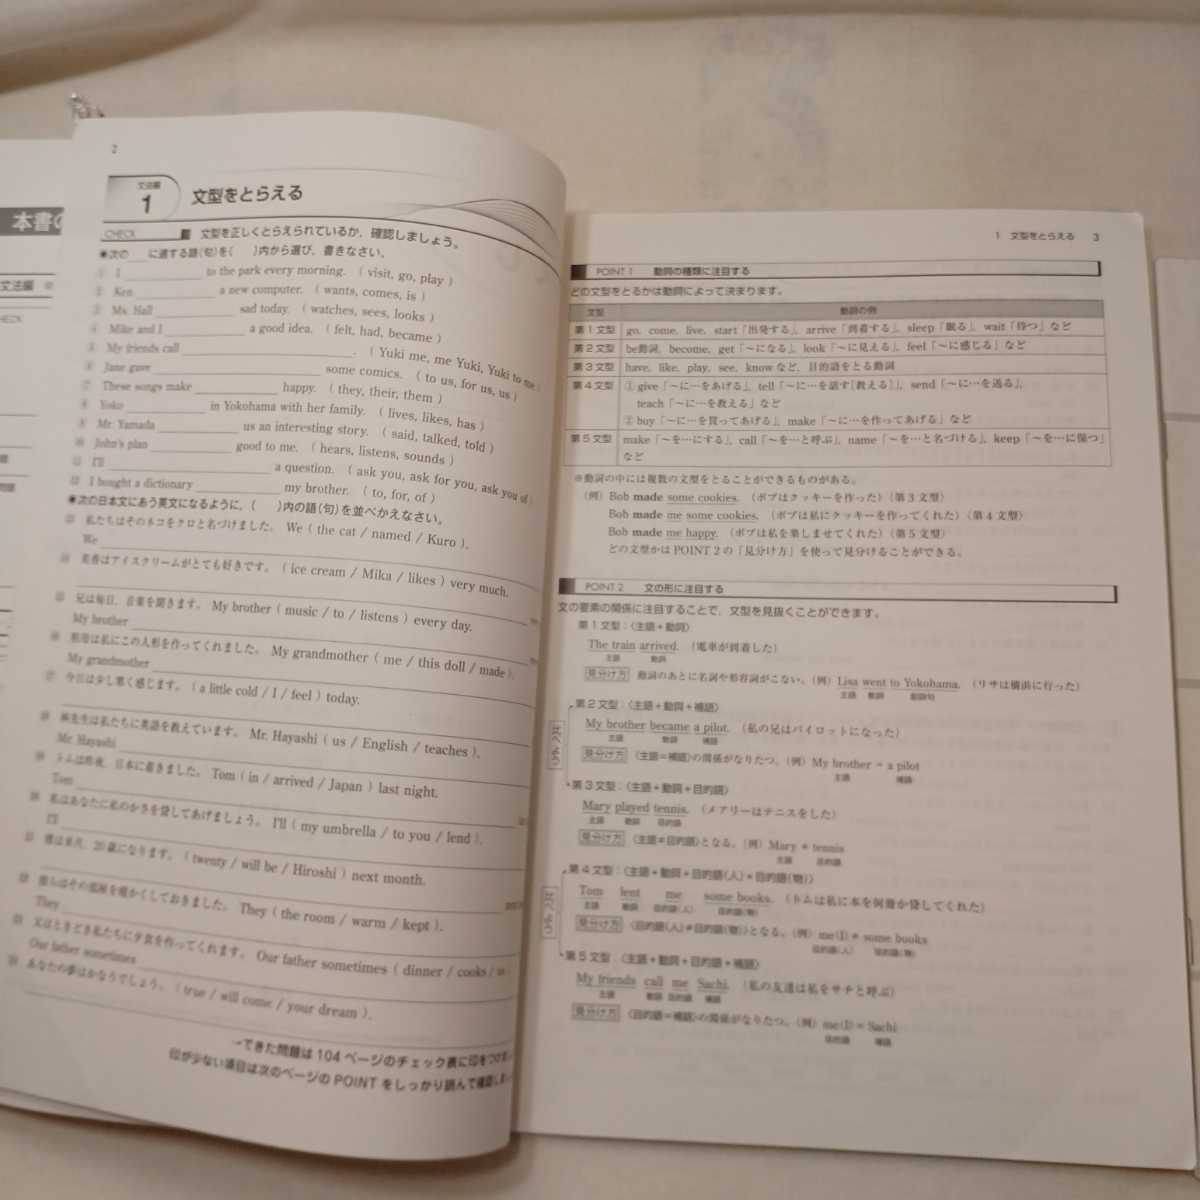 本書の
文法編
HECK
2
文法編
1
文型をとらえる
CHECK 文型を正しくとらえられているか、確認しましょう。
◉次の___に適する語(句)を( )内から選び、書きなさい。
① I ______ to the park every morning. ( visit, go, play )
② Ken ______ a new computer. ( wants, comes, is )
③ Ms. Hall ______ sad today. ( watches, sees, looks )
④ Mike and I ______ a good idea. ( felt, had, became )
⑤ My friends call ______. ( Yuki me, me Yuki, Yuki to me )
⑥ Jane gave ______ some comics. ( to us, for us, us )
⑦ These songs make ______ happy. ( they, their, them )
⑧ Yoko ______ in Yokohama with her family. ( lives, likes, has )
⑨ Mr. Yamada ______ us an interesting story. ( said, talked, told )
⑩ John's plan ______ good to me. ( hears, listens, sounds )
⑪ I'll ______ a question. ( ask you, ask for you, ask you of
⑫ I bought a dictionary ______ my brother. ( to, for, of )
◉次の日本文にあう英文になるように、( )内の語(句)を並べかえなさい。
⑬ 私たちはそのネコをクロと名づけました。 We ( the cat / named / Kuro ).
We
⑭ 美香はアイスクリームがとても好きです。 ( ice cream / Mika / likes ) very much.
⑮ 兄は毎日、音楽を聞きます。 My brother ( music / to / listens ) every day.
My brother
⑯ 祖母は私にこの人形を作ってくれました。 My grandmother ( me / this doll / made ).
My grandmother
⑰ 今日は少し寒く感じます。 ( a little cold / I / feel ) today.
⑱ 林先生は私たちに英語を教えています。 Mr. Hayashi ( us / English / teaches ).
Mr. Hayashi
⑲ トムは昨夜、日本に着きました。 Tom ( in / arrived / Japan ) last night.
Tom
⑳ 私はあなたに私のかさを貸してあげましょう。 I'll ( my umbrella / to you / lend ).
I'll
㉑ 博は来月、20歳になります。 ( twenty / will be / Hiroshi ) next month.
㉒ 彼らはその部屋を暖かくしておきました。 They ( the room / warm / kept ).
They
㉓ 父はときどき私たちに夕食を作ってくれます。 Our father sometimes ( dinner / cooks /
Our father sometimes
㉔ あなたの夢はかなうでしょう。 ( true / will come / your dream ).
できた問題は104ページのチェック表に印をつけ
印が少ない項目は次のページのPOINTをしっかり読んで確認し
1 文型をとらえる 3
POINT 1 動詞の種類に注目する
どの文型をとるかは動詞によって決まります。
文型 動詞の例
第1文型 go, come, live, start「出発する」, arrive「到着する」, sleep「眠る」, wait「待つ」など
第2文型 be動詞, become, get「〜になる」, look「〜に見える」, feel「〜に感じる」など
第3文型 have, like, play, see, know など、目的語をとる動詞
第4文型 ①give「〜に…をあげる」, tell「〜に…を話す[教える]」, send「〜に…を送る」,
teach「〜に…を教える」など
②buy「〜に…を買ってあげる」, make「〜に…を作ってあげる」など
第5文型 make「〜を…にする」, call「〜を…と呼ぶ」, name「〜を…と名づける」, keep「〜を…に保つ」
など
※動詞の中には複数の文型をとることができるものがある。
(例) Bob made some cookies. (ボブはクッキーを作った)(第3文型)
Bob made me some cookies. (ボブは私にクッキーを作ってくれた)(第4文型)
Bob made me happy. (ボブは私を楽しませてくれた)(第5文型)
どの文型かはPOINT 2の「見分け方」を使って見分けることができる。
POINT 2 文の形に注目する
文の要素の関係に注目することで、文型を見抜くことができます。
第1文型:〈主語+動詞〉
The train arrived. (電車が到着した)
主語 動詞
見分け方 動詞のあとに名詞や形容詞がこない。(例) Lisa went to Yokohama. (リサは横浜に行った)
主語 動詞 副詞句
第2文型:〈主語+動詞+補語〉
My brother became a pilot. (私の兄はパイロットになった)
主語 動詞 補語
見分け方 〈主語=補語〉の関係がなりたつ。(例) My brother = a pilot
主語 補語
第3文型:〈主語+動詞+目的語〉
Mary played tennis. (メアリーはテニスをした)
主語 動詞 目的語
見分け方 〈主語≠目的語〉となる。(例) Mary ≠ tennis
主語 目的語
第4文型:〈主語+動詞+目的語(人)+目的語(物)〉
Tom lent me some books. (トムは私に本を何冊か貸してくれた)
主語 動詞 目的語(人) 目的語(物)
見分け方 〈目的語(人)≠目的語(物)〉となる。(例) me(I) ≠ some books
目的語(人) 目的語(物)
第5文型:〈主語+動詞+目的語+補語〉
My friends call me Sachi. (私の友達は私をサチと呼ぶ)
主語 動詞 目的語 補語
見分け方 〈目的語=補語〉の関係がなりたつ。(例) me(I) = Sachi
目的語 補語